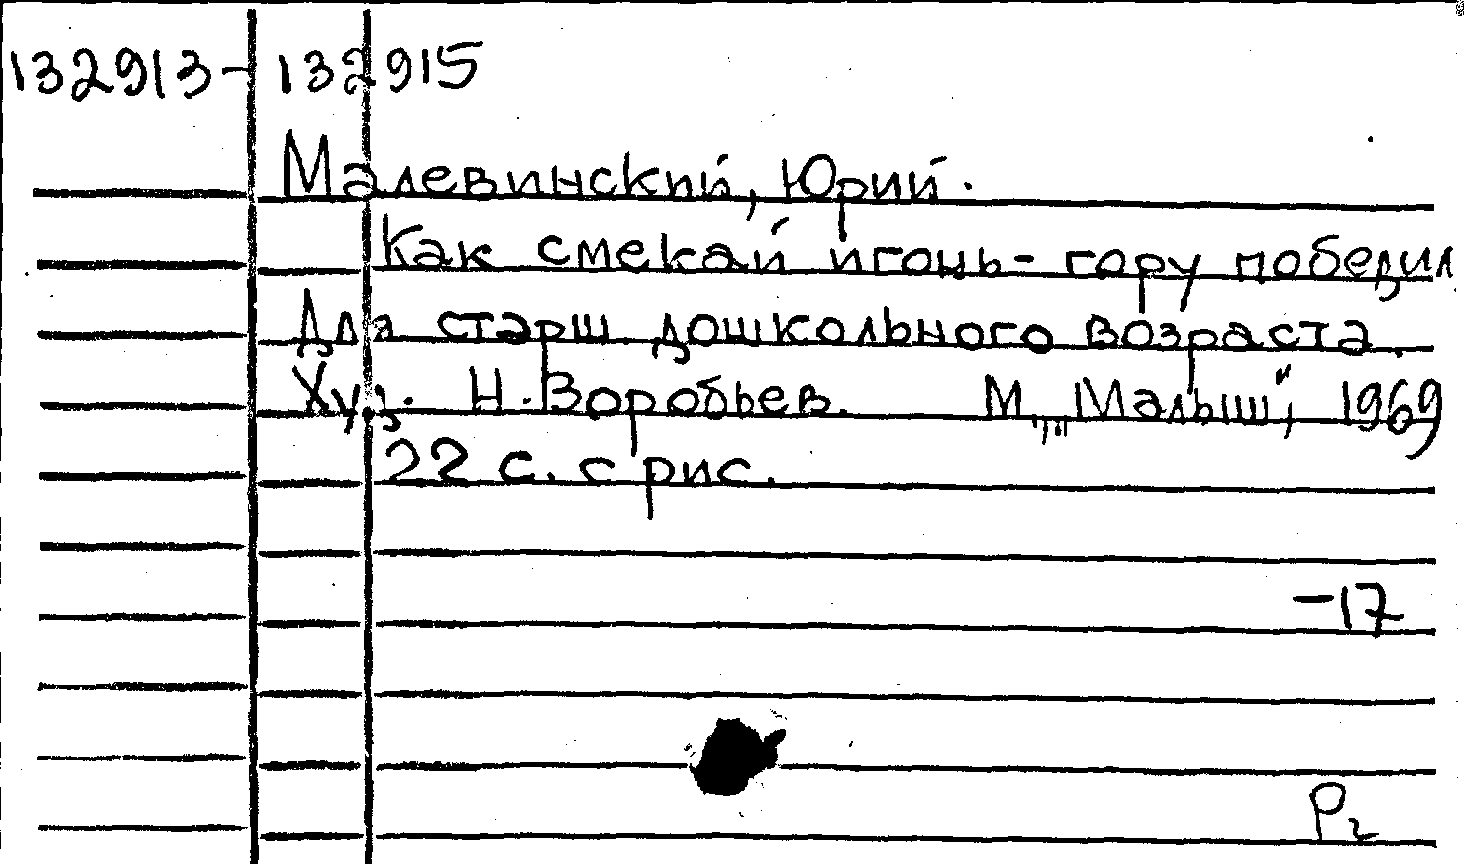 132913-132915
Малевинский, Юрий.
Как смекай игонь-гору победил
Для старш. дошкольного возраста.
Худ. Н. Воробьев. М., „Малыш", 1969
22 с. с рис.
-17
Р2